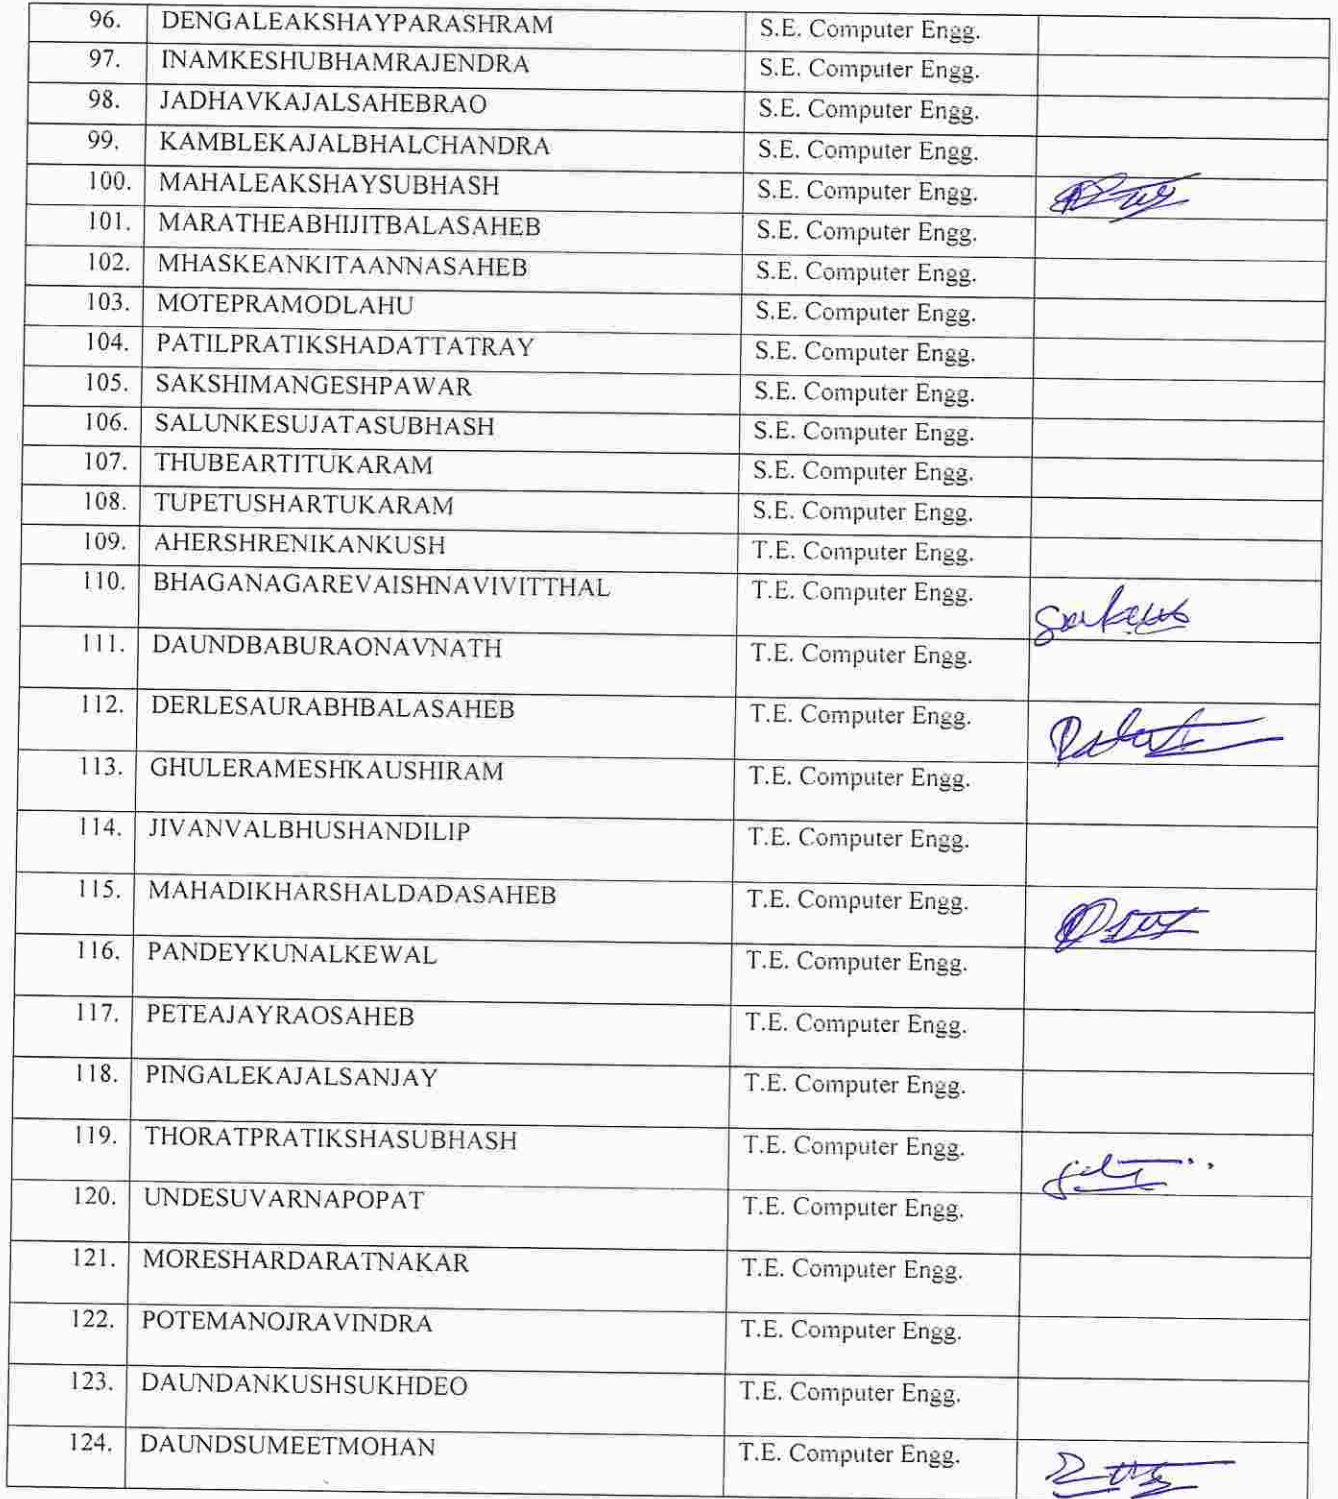 96. DENGALEAKSHAYPARASHRAM S.E. Computer Engg.
97. INAMKESHUBHAMRAJENDRA S.E. Computer Engg.
98. JADHAVKAJALSAHEBRAO S.E. Computer Engg.
99. KAMBLEKAJALBHALCHANDRA S.E. Computer Engg.
100. MAHALEAKSHAYSUBHASH S.E. Computer Engg.
101. MARATHEABHIJITBALASAHEB S.E. Computer Engg.
102. MHASKEANKITAANNASAHEB S.E. Computer Engg.
103. MOTEPRAMODLAHU S.E. Computer Engg.
104. PATILPRATIKSHADATTATRAY S.E. Computer Engg.
105. SAKSHIMANGESHPAWAR S.E. Computer Engg.
106. SALUNKESUJATASUBHASH S.E. Computer Engg.
107. THUBEARTITUKARAM S.E. Computer Engg.
108. TUPETUSHARTUKARAM S.E. Computer Engg.
109. AHERSHRENIKANKUSH T.E. Computer Engg.
110. BHAGANAGAREVAISHNAVIVITTHAL T.E. Computer Engg.
111. DAUNDBABURAONAVNATH T.E. Computer Engg.
112. DERLESAURABHBALASAHEB T.E. Computer Engg.
113. GHULERAMESHKAUSHIRAM T.E. Computer Engg.
114. JIVANVALBHUSHANDILIP T.E. Computer Engg.
115. MAHADIKHARSHALDADASAHEB T.E. Computer Engg.
116. PANDEYKUNALKEWAL T.E. Computer Engg.
117. PETEAJAYRAOSAHEB T.E. Computer Engg.
118. PINGALEKAJALSANJAY T.E. Computer Engg.
119. THORATPRATIKSHASUBHASH T.E. Computer Engg.
120. UNDESUVARNAPOPAT T.E. Computer Engg.
121. MORESHARDARATNAKAR T.E. Computer Engg.
122. POTEMANOJRAVINDRA T.E. Computer Engg.
123. DAUNDANKUSHSUKHDEO T.E. Computer Engg.
124. DAUNDSUMEETMOHAN T.E. Computer Engg.